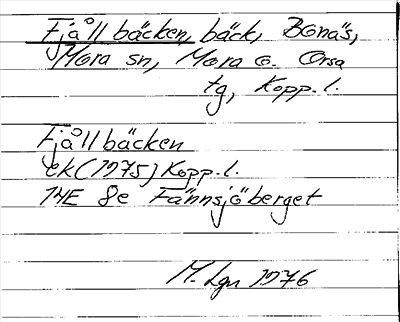 Fjållbäcken, bäck, Bonäs,
Mora sn, Mora o. Orsa
tg, Kopp. l.
Fjållbäcken
ek (1975) Kopp. l.
14E 8e Fännsjöberget
M. Lgn 1976